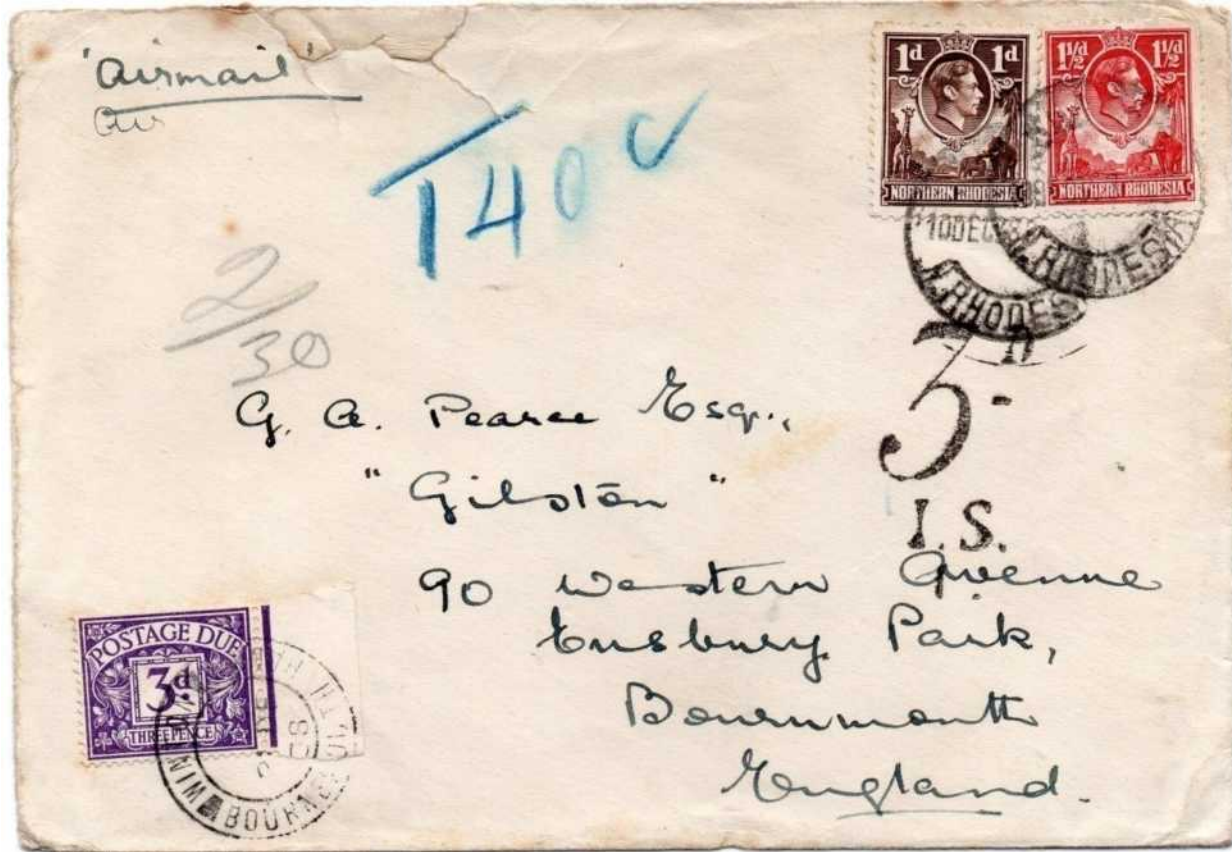 'Airmail'
Air
T 40 c
1d 1d
NORTHERN RHODESIA
1½d 1½d
NORTHERN RHODESIA
10 DEC
N. RHODESIA
N. RHODESIA
2/30
3D-
I.S.
G. A. Pearce Esq.,
"Gilston"
90 Western Avenue
Ensbury Park,
Bournemouth
England.
POSTAGE DUE
3d.
THREE PENCE
BOURNEMOUTH
WIN